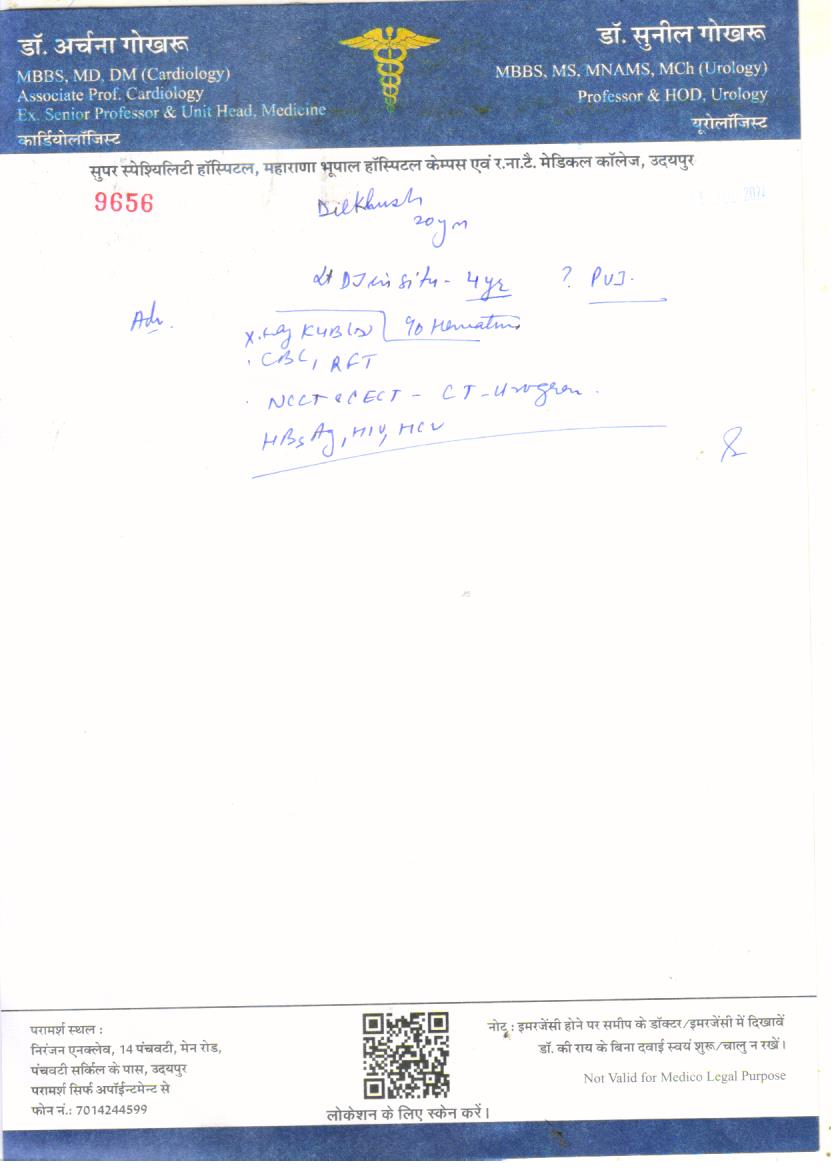 डॉ. अर्चना गोखरू
MBBS, MD, DM (Cardiology)
Associate Prof. Cardiology
Ex. Senior Professor & Unit Head, Medicine
कार्डियोलॉजिस्ट
डॉ. सुनील गोखरू
MBBS, MS, MNAMS, MCh (Urology)
Professor & HOD, Urology
यूरोलॉजिस्ट
सुपर स्पेश्यिलिटी हॉस्पिटल, महाराणा भूपाल हॉस्पिटल केम्पस एवं र.ना.टै. मेडिकल कॉलेज, उदयपुर
9656
Dilkhush
20 ym
DJ in situ - 4 yr ? PUJ.
Adv.
X-ray KUB
. CBC, RFT
. NCCT & CECT - CT-Urogram.
HBsAg, HIV, HCV
परामर्श स्थल :
निरंजन एनक्लेव, 14 पंचवटी, मेन रोड,
पंचवटी सर्किल के पास, उदयपुर
परामर्श सिर्फ अपॉईन्टमेन्ट से
फोन नं.: 7014244599
लोकेशन के लिए स्केन करें।
नोट : इमरजेंसी होने पर समीप के डॉक्टर/इमरजेंसी में दिखावें
डॉ. की राय के बिना दवाई स्वयं शुरू/चालु न रखें।
Not Valid for Medico Legal Purpose